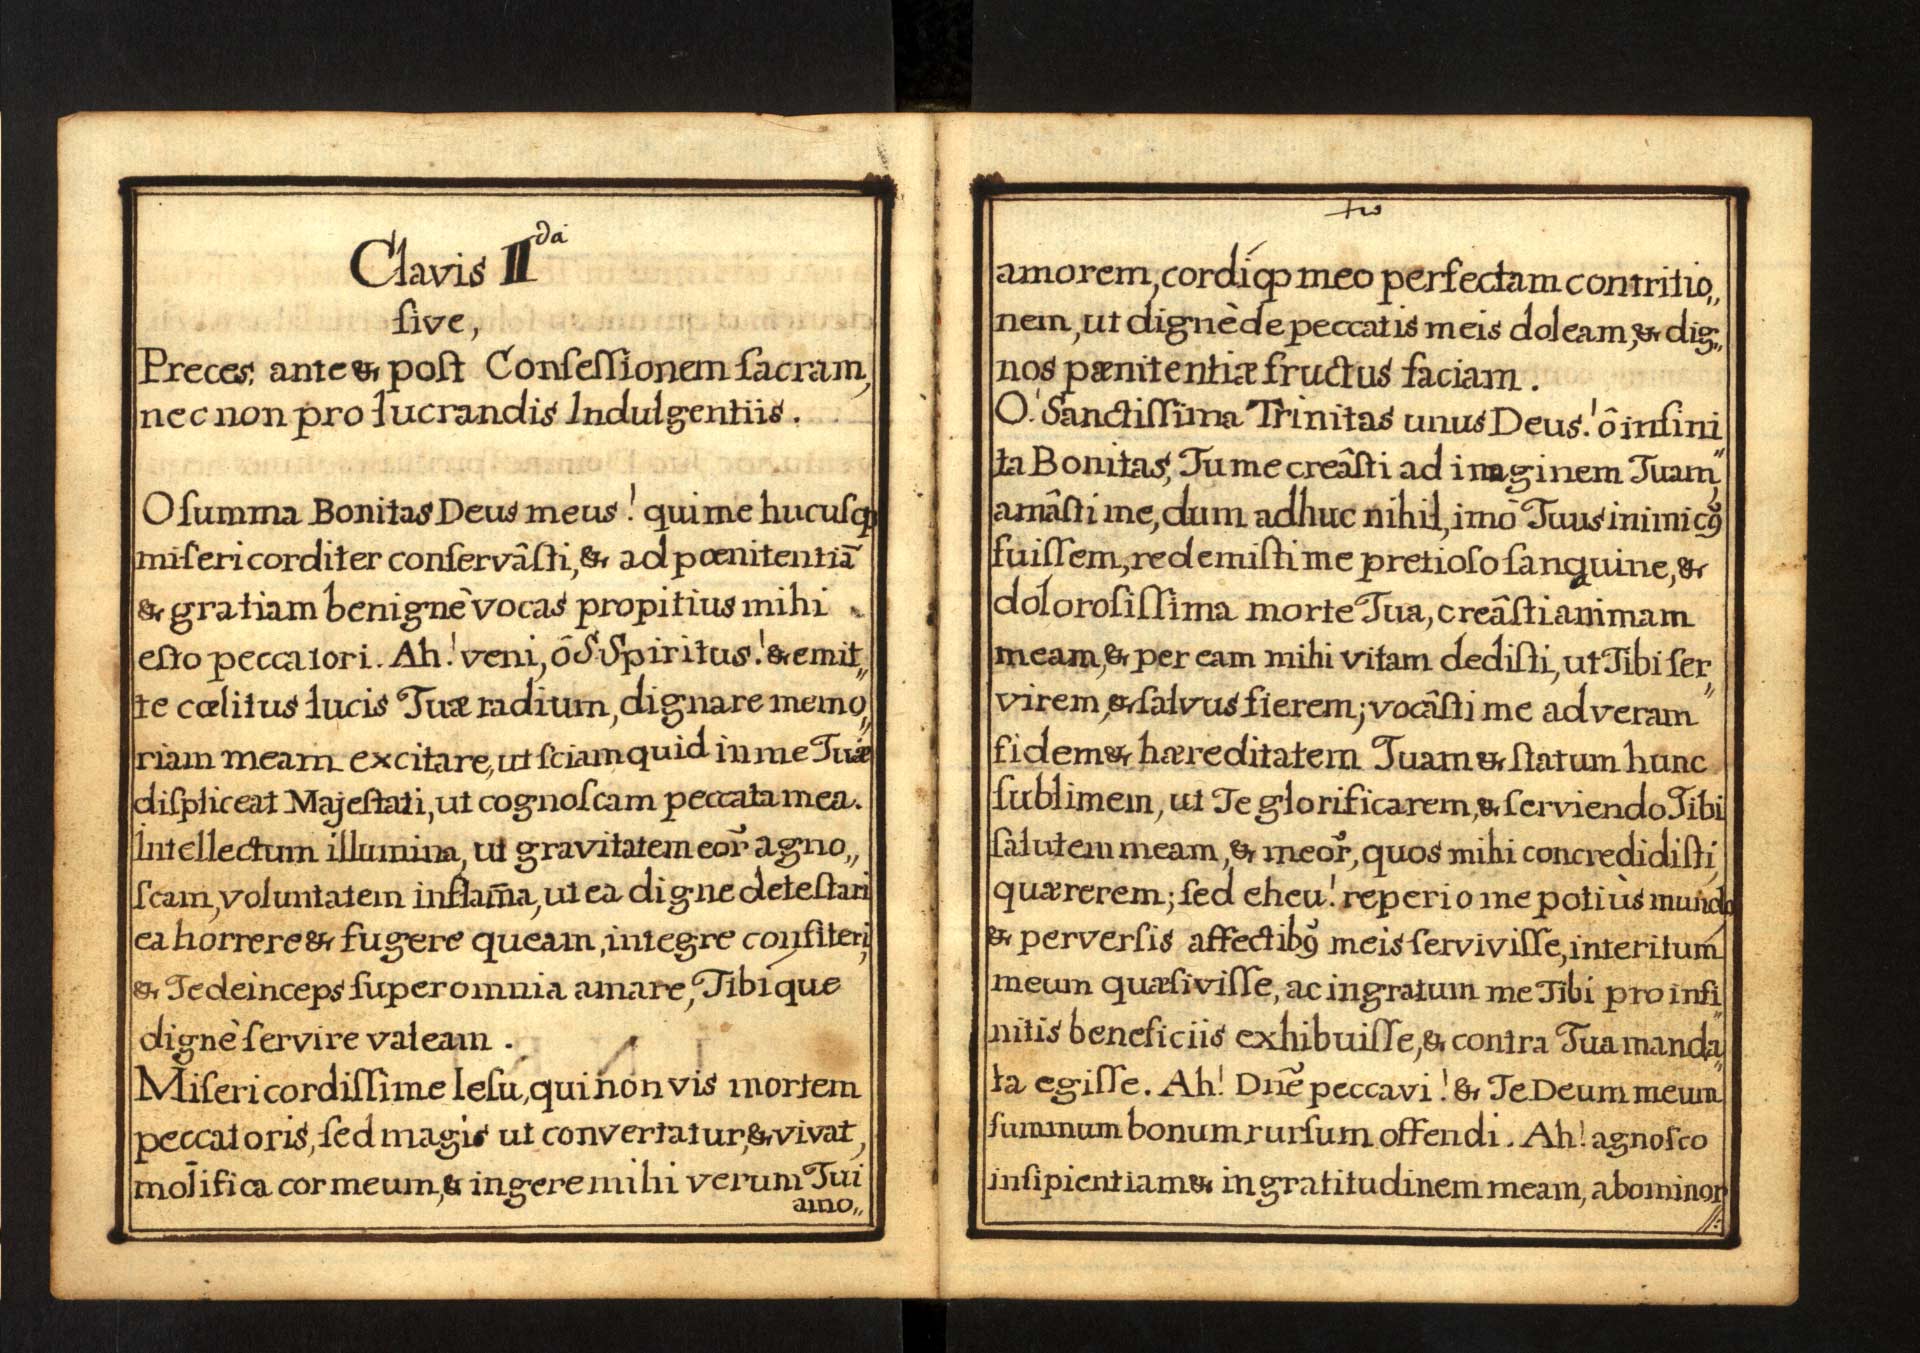 Clavis II^da
ſive,
Preces ante & poſt Confeſſionem ſacram,
nec non pro lucrandis Indulgentiis.
O ſumma Bonitas Deus meus! qui me hucuſqꝫ
miſericorditer conſervâſti, & ad pœnitentiā
& gratiam benignè vocas propitius mihi
eſto peccatori. Ah! veni, ô S. Spiritus! & emit„
te cœlitus lucis Tuæ radium, dignare memo„
riam meam excitare, ut ſciam quid in me Tuæ
diſpliceat Majeſtati, ut cognoſcam peccata mea.
Intellectum illumina, ut gravitatem eor̃ agno„
ſcam, voluntatem inflam̃a, ut ea digne deteſtari
ea horrere & fugere queam, integre confiteri,
& Te deinceps ſuper omnia amare, Tibíque
dignè ſervire valeam.
Miſericordiſſime Ieſu, qui non vis mortem
peccatoris, ſed magis ut convertatur, & vivat,
mol̄ifica cor meum, & ingere mihi verum Tui
amo„
amorem, cordíqꝫ meo perfectam contritio„
nem, ut dignè de peccatis meis doleam, & dig„
nos pænitentiæ fructus faciam.
O! Sanctiſſima Trinitas unus Deus! ô infini
ta Bonitas, Tu me creâſti ad imaginem Tuam„
amâſti me, dum adhuc nihil, imò Tuus inimicꝰ
fuiſſem, redemiſti me pretioſo ſanquine, &
doloroſiſſima morte Tua, creâſti animam
meam, & per eam mihi vitam dediſti, ut Tibi ſer„
virem, & ſalvus fierem; vocâſti me ad veram
fidem & hæreditatem Tuam & ſtatum hunc
ſublimem, ut Te glorificarem, & ſerviendo Tibi
ſalutem meam, & meor̃, quos mihi concrediſti,
quærerem; ſed eheu! reperio me potiùs mundo
& perverſis affectibꝰ meis ſerviviſſe, interitum
meum quæſiviſſe, ac ingratum me Tibi pro infi„
nitis beneficiis exhibuiſſe, & contra Tua manda„
ta egiſſe. Ah! Dnē peccavi! & Te Deum meum
ſummum bonum rurſum offendi. Ah! agnoſco
inſipientiam & ingratitudinem meam, abominor
//: